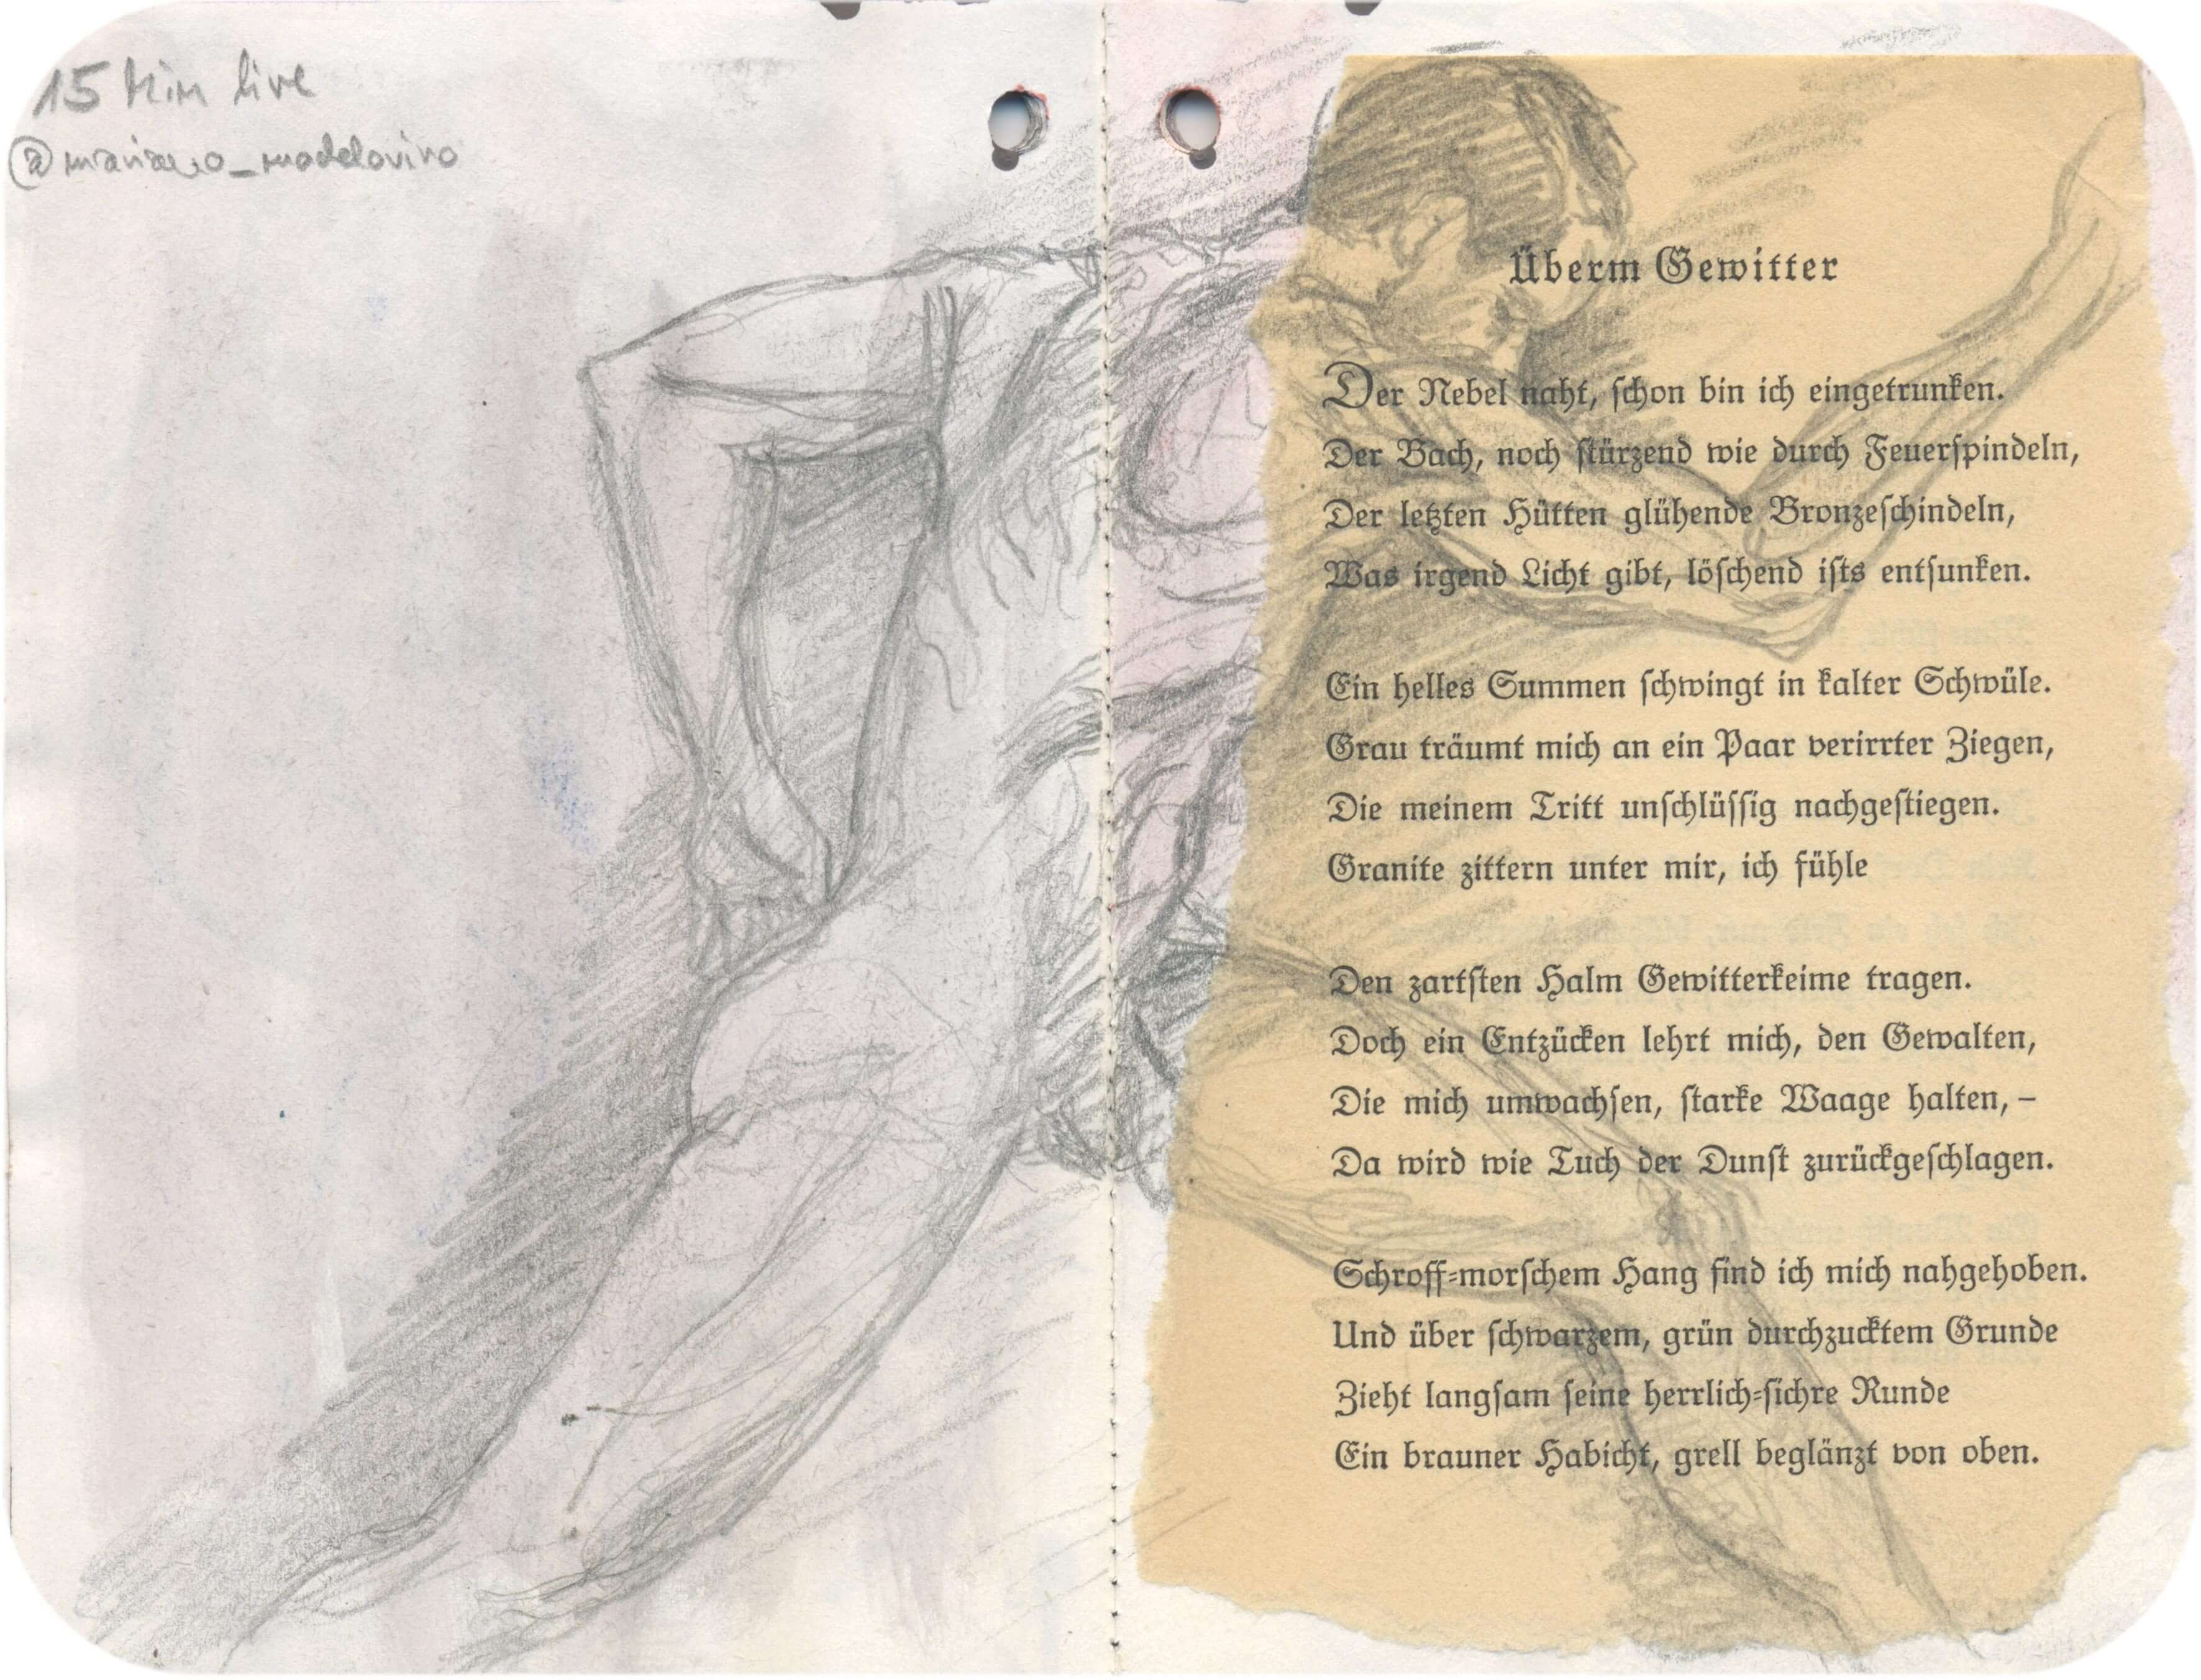 15 Min live
@mariano_modelovivo
Überm Gewitter
Der Nebel naht, ſchon bin ich eingetrunken.
Der Bach, noch ſtürzend wie durch Feuerſpindeln,
Der letzten Hütten glühende Bronzeſchindeln,
Was irgend Licht gibt, löſchend iſts entſunken.
Ein helles Summen ſchwingt in kalter Schwüle.
Grau träumt mich an ein Paar verirrter Ziegen,
Die meinem Tritt unſchlüſſig nachgeſtiegen.
Granite zittern unter mir, ich fühle
Den zartſten Halm Gewitterkeime tragen.
Doch ein Entzücken lehrt mich, den Gewalten,
Die mich umwachſen, ſtarke Waage halten, –
Da wird wie Tuch der Dunſt zurückgeſchlagen.
Schroff-morſchem Hang find ich mich nahgehoben.
Und über ſchwarzem, grün durchzucktem Grunde
Zieht langſam ſeine herrlich-ſichre Runde
Ein brauner Habicht, grell beglänzt von oben.